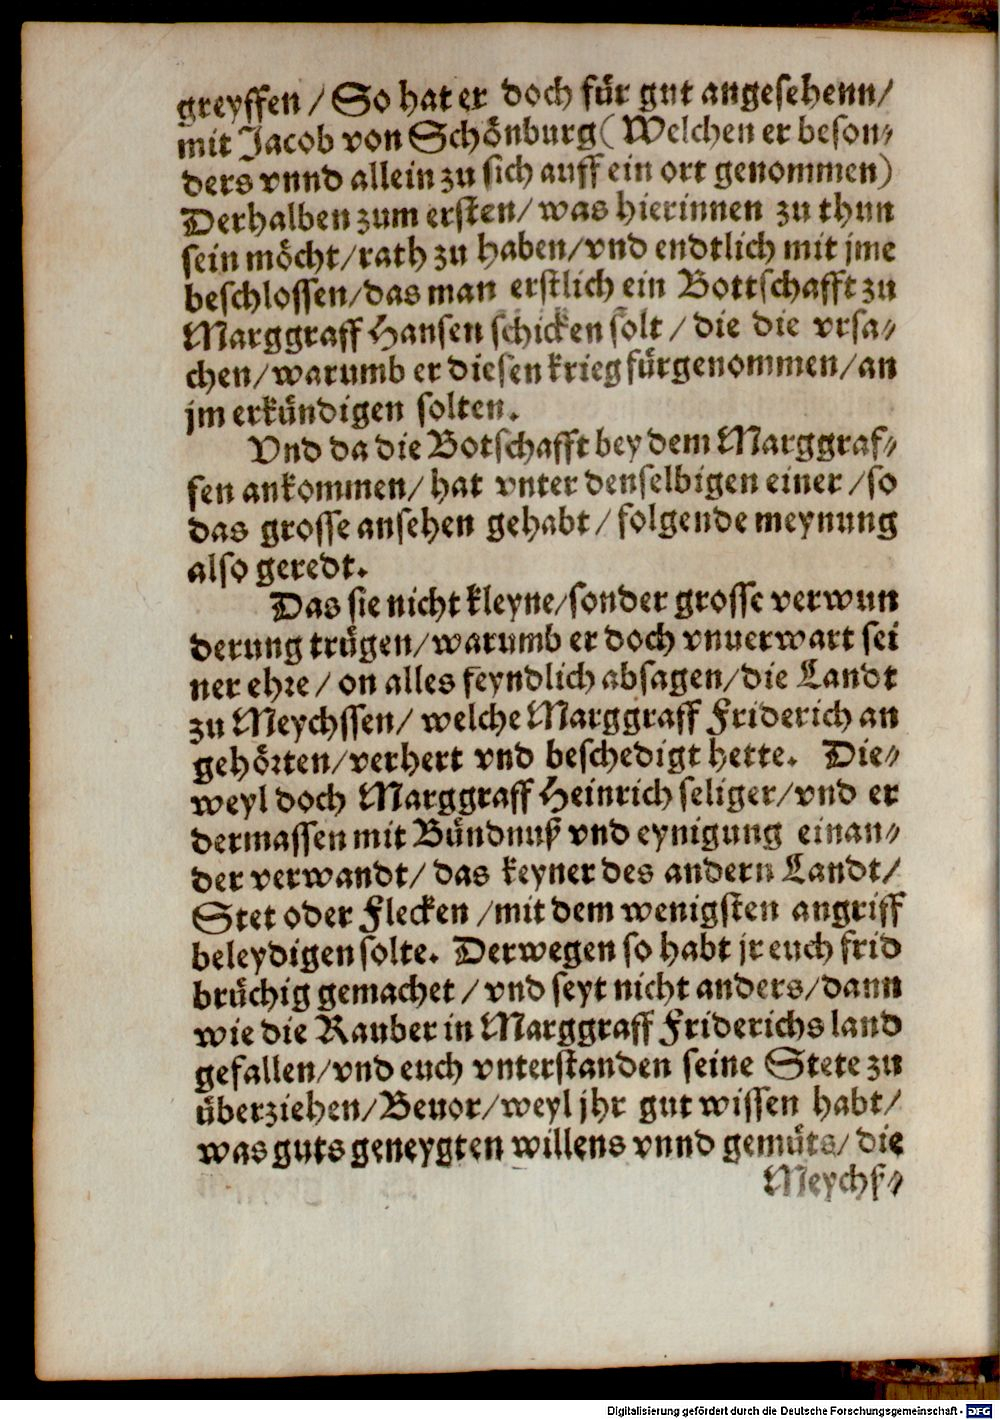 greyffen / So hat er doch für gut angesehenn/
mit Jacob von Schönburg( Welchen er beson⸗
ders vnnd allein zu sich auff ein ort genommen)
Derhalben zum ersten/ was hierinnen zu thun
sein möcht/rath zu haben/vnd endtlich mit jme
beschlossen/das man erstlich ein Bottschafft zu
Marggraff Hansen schicken solt / die die vrsa⸗
chen/warumb er diesen krieg fürgenommen/an
jm erkündigen solten.
Vnd da die Botschafft bey dem Marggraf⸗
fen ankommen/ hat vnter denselbigen einer /so
das grosse ansehen gehabt/ folgende meynung
also geredt.
Das sie nicht kleyne/sonder grosse verwun
derung trügen/warumb er doch vnuerwart sei
ner ehre/ on alles feyndlich absagen/die Landt
zu Meychssen/ welche Marggraff Friderich an
gehörten/verhert vnd beschedigt hette. Die⸗
weyl doch Marggraff Heinrich seliger/vnd er
dermassen mit Bündnuß vnd eynigung einan⸗
der verwandt/ das keyner des andern Landt/
Stet oder Flecken /mit dem wenigsten angriff
beleydigen solte. Derwegen so habt jr euch frid
brüchig gemachet / vnd seyt nicht anders/dann
wie die Rauber in Marggraff Friderichs land
gefallen/vnd euch vnterstanden seine Stete zu
überziehen/Beuor/weyl jhr gut wissen habt/
was guts geneygten willens vnnd gemüts/ die
Meychs⸗
Digitalisierung gefördert durch die Deutsche Forschungsgemeinschaft - DFG